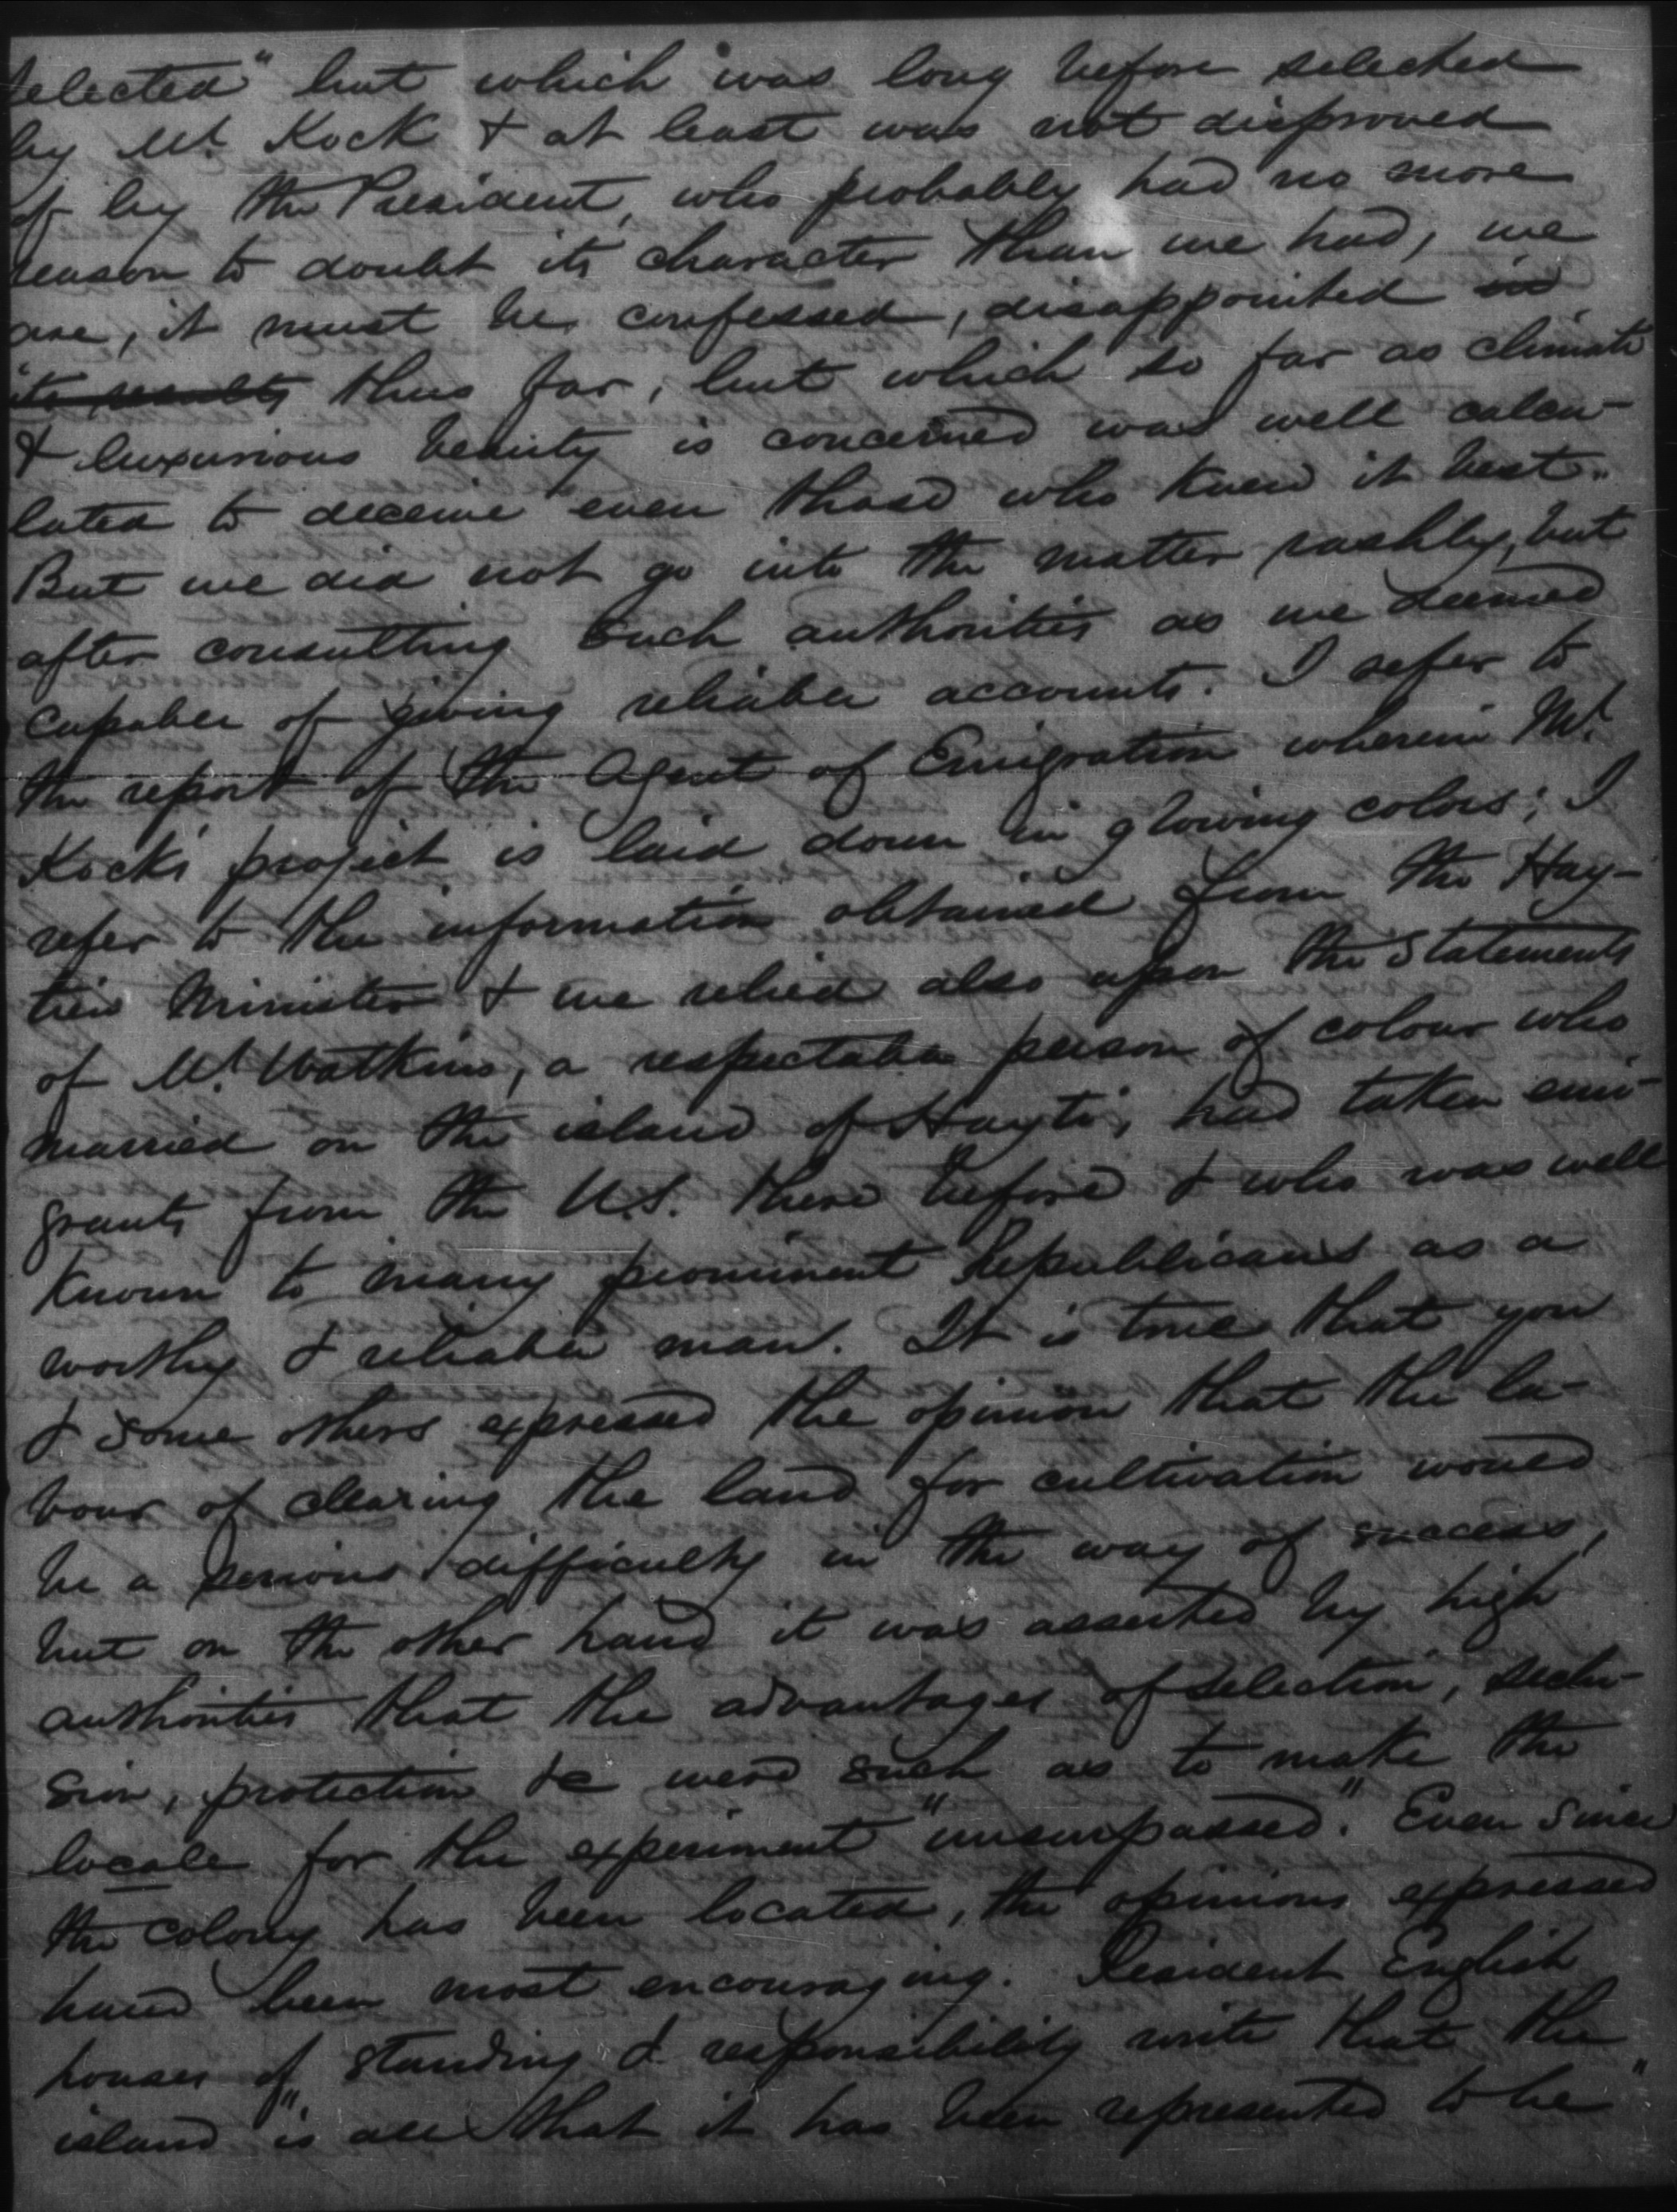 selected" but which was long before selected
by Mr. Kock & at least was not disproved
of by the President, who probably had no more
reason to doubt its character than we had, we
are, it must be confessed, disappointed in
its results thus far, but which so far as climate
& luxurious beauty is concerned was well calcu-
lated to deceive even those who knew it best.
But we did not go into the matter rashly, but
after consulting such authorities as we deemed
capable of giving reliable accounts. I refer to
the report of the Agent of Emigration wherein Mr.
Kock's project is laid down in glowing colors; I
refer to the information obtained from the Hay-
tien Minister & we relied also upon the Statements
of Mr. Watkins, a respectable person of colour who
married on the island of Hayti, had taken emi-
grants from the U.S. there before & who was well
known to many prominent Republicans as a
worthy & reliable man. It is true that you
& some others expressed the opinion that the la-
bour of clearing the land for cultivation would
be a serious difficulty in the way of success,
but on the other hand it was asserted by high
authorities that the advantages of selection, seclu-
sion, protection &c were such as to make the
locale for the experiment "unsurpassed." Even since
the colony has been located, the opinions expressed
have been most encouraging. Resident English
houses of standing & responsibility write that the
island "is all that it has been represented to be"